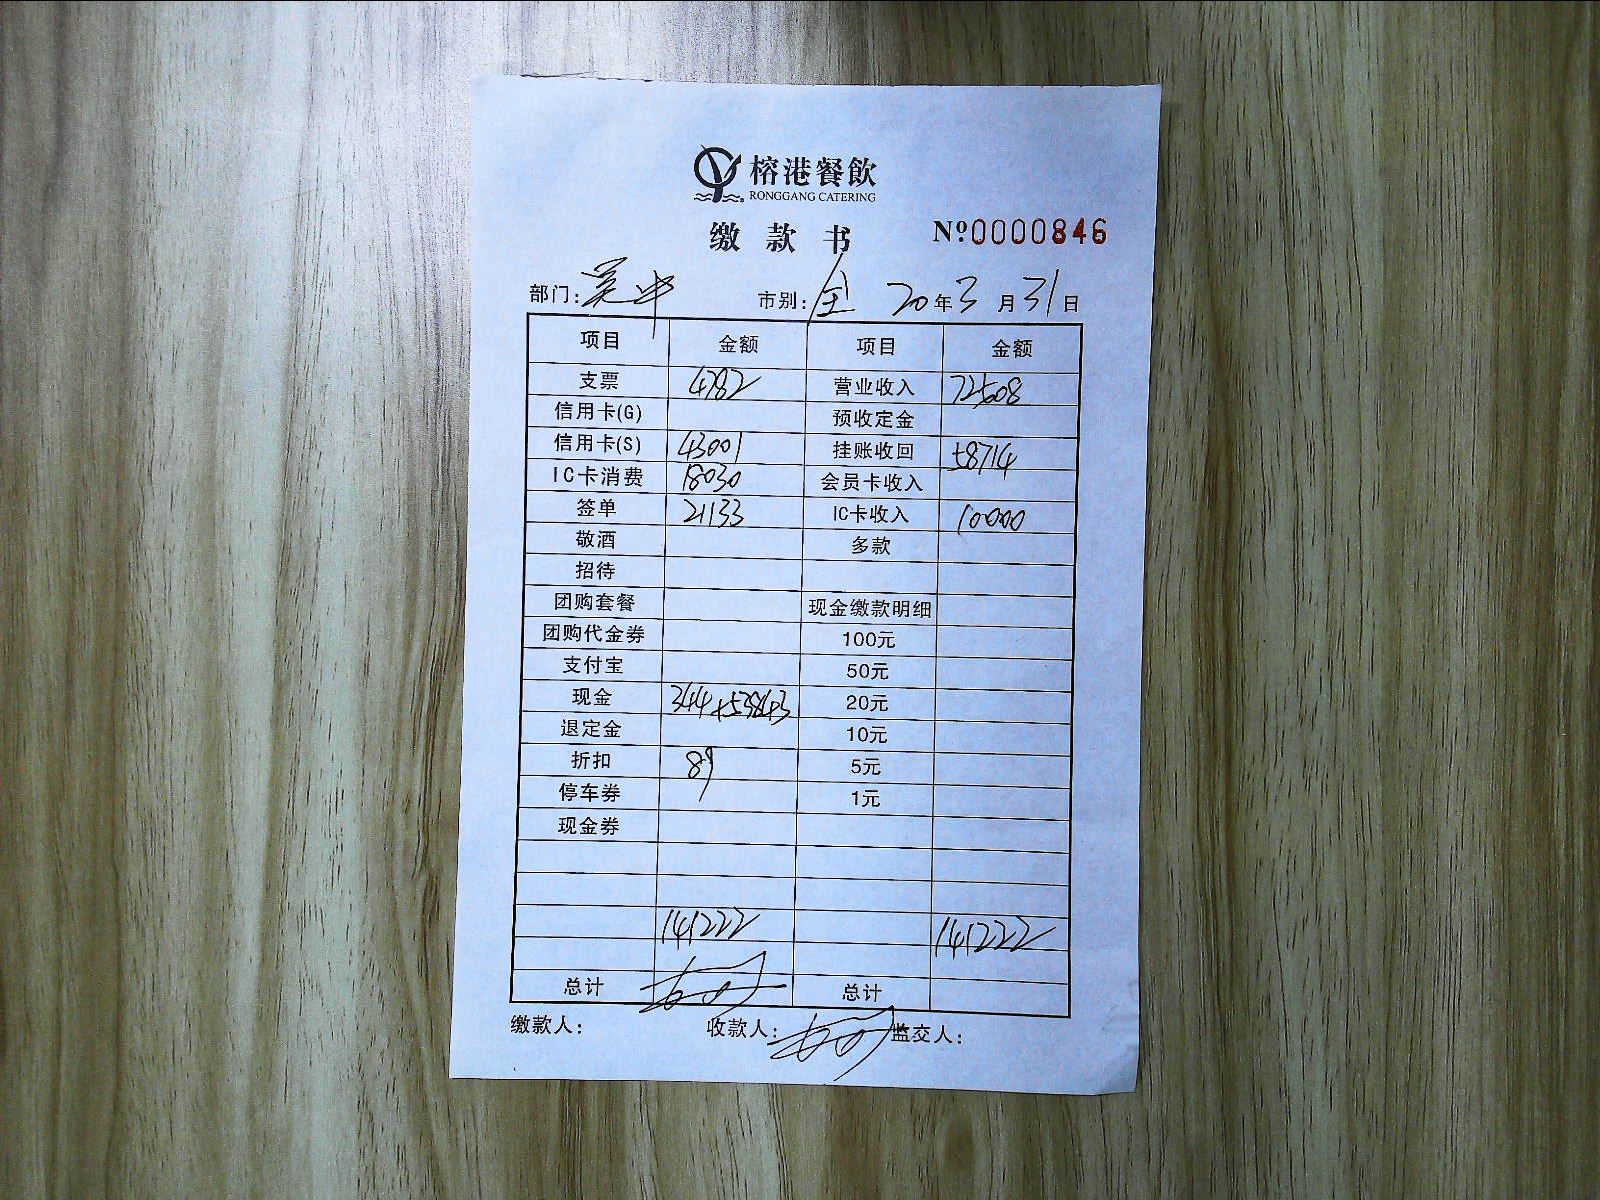 榕港餐飲
RONGGANG CATERING
缴款书 Nº0000846
部门: 吴中 市别: 全 20年3月31日
项目 金额 项目 金额
支票 4782 营业收入 72508
信用卡(G) 预收定金
信用卡(S) 43001 挂账收回 58714
IC卡消费 18030 会员卡收入
签单 21133 IC卡收入 10000
敬酒 多款
招待
团购套餐 现金缴款明细
团购代金券 100元
支付宝 50元
现金 344+53843 20元
退定金 10元
折扣 89 5元
停车券 1元
现金券
141222 141222
总计 总计
缴款人: 收款人: 监交人: